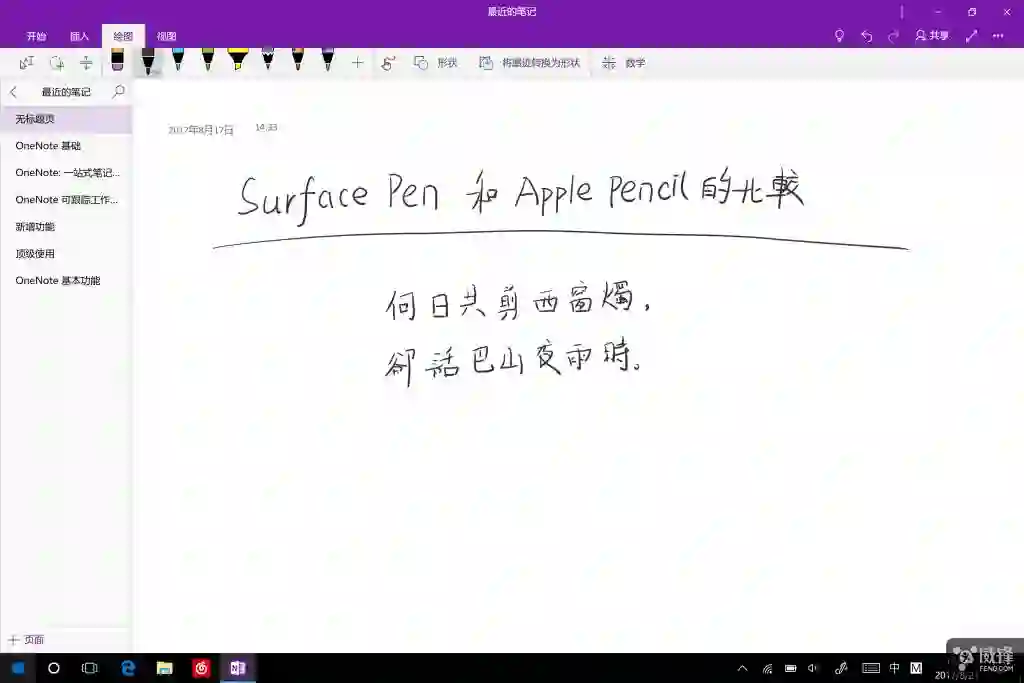 最近的笔记
开始 插入 绘图 视图 共享
形状 将墨迹转换为形状 数学
最近的笔记
无标题页
OneNote 基础
OneNote: 一站式笔记...
OneNote 可跟踪工作...
新增功能
顶级使用
OneNote 基本功能
2017年8月17日 14:33
Surface Pen 和 Apple Pencil 的比較
何日共剪西窗燭,
卻話巴山夜雨時。
页面
中 M
威锋
FENG.COM